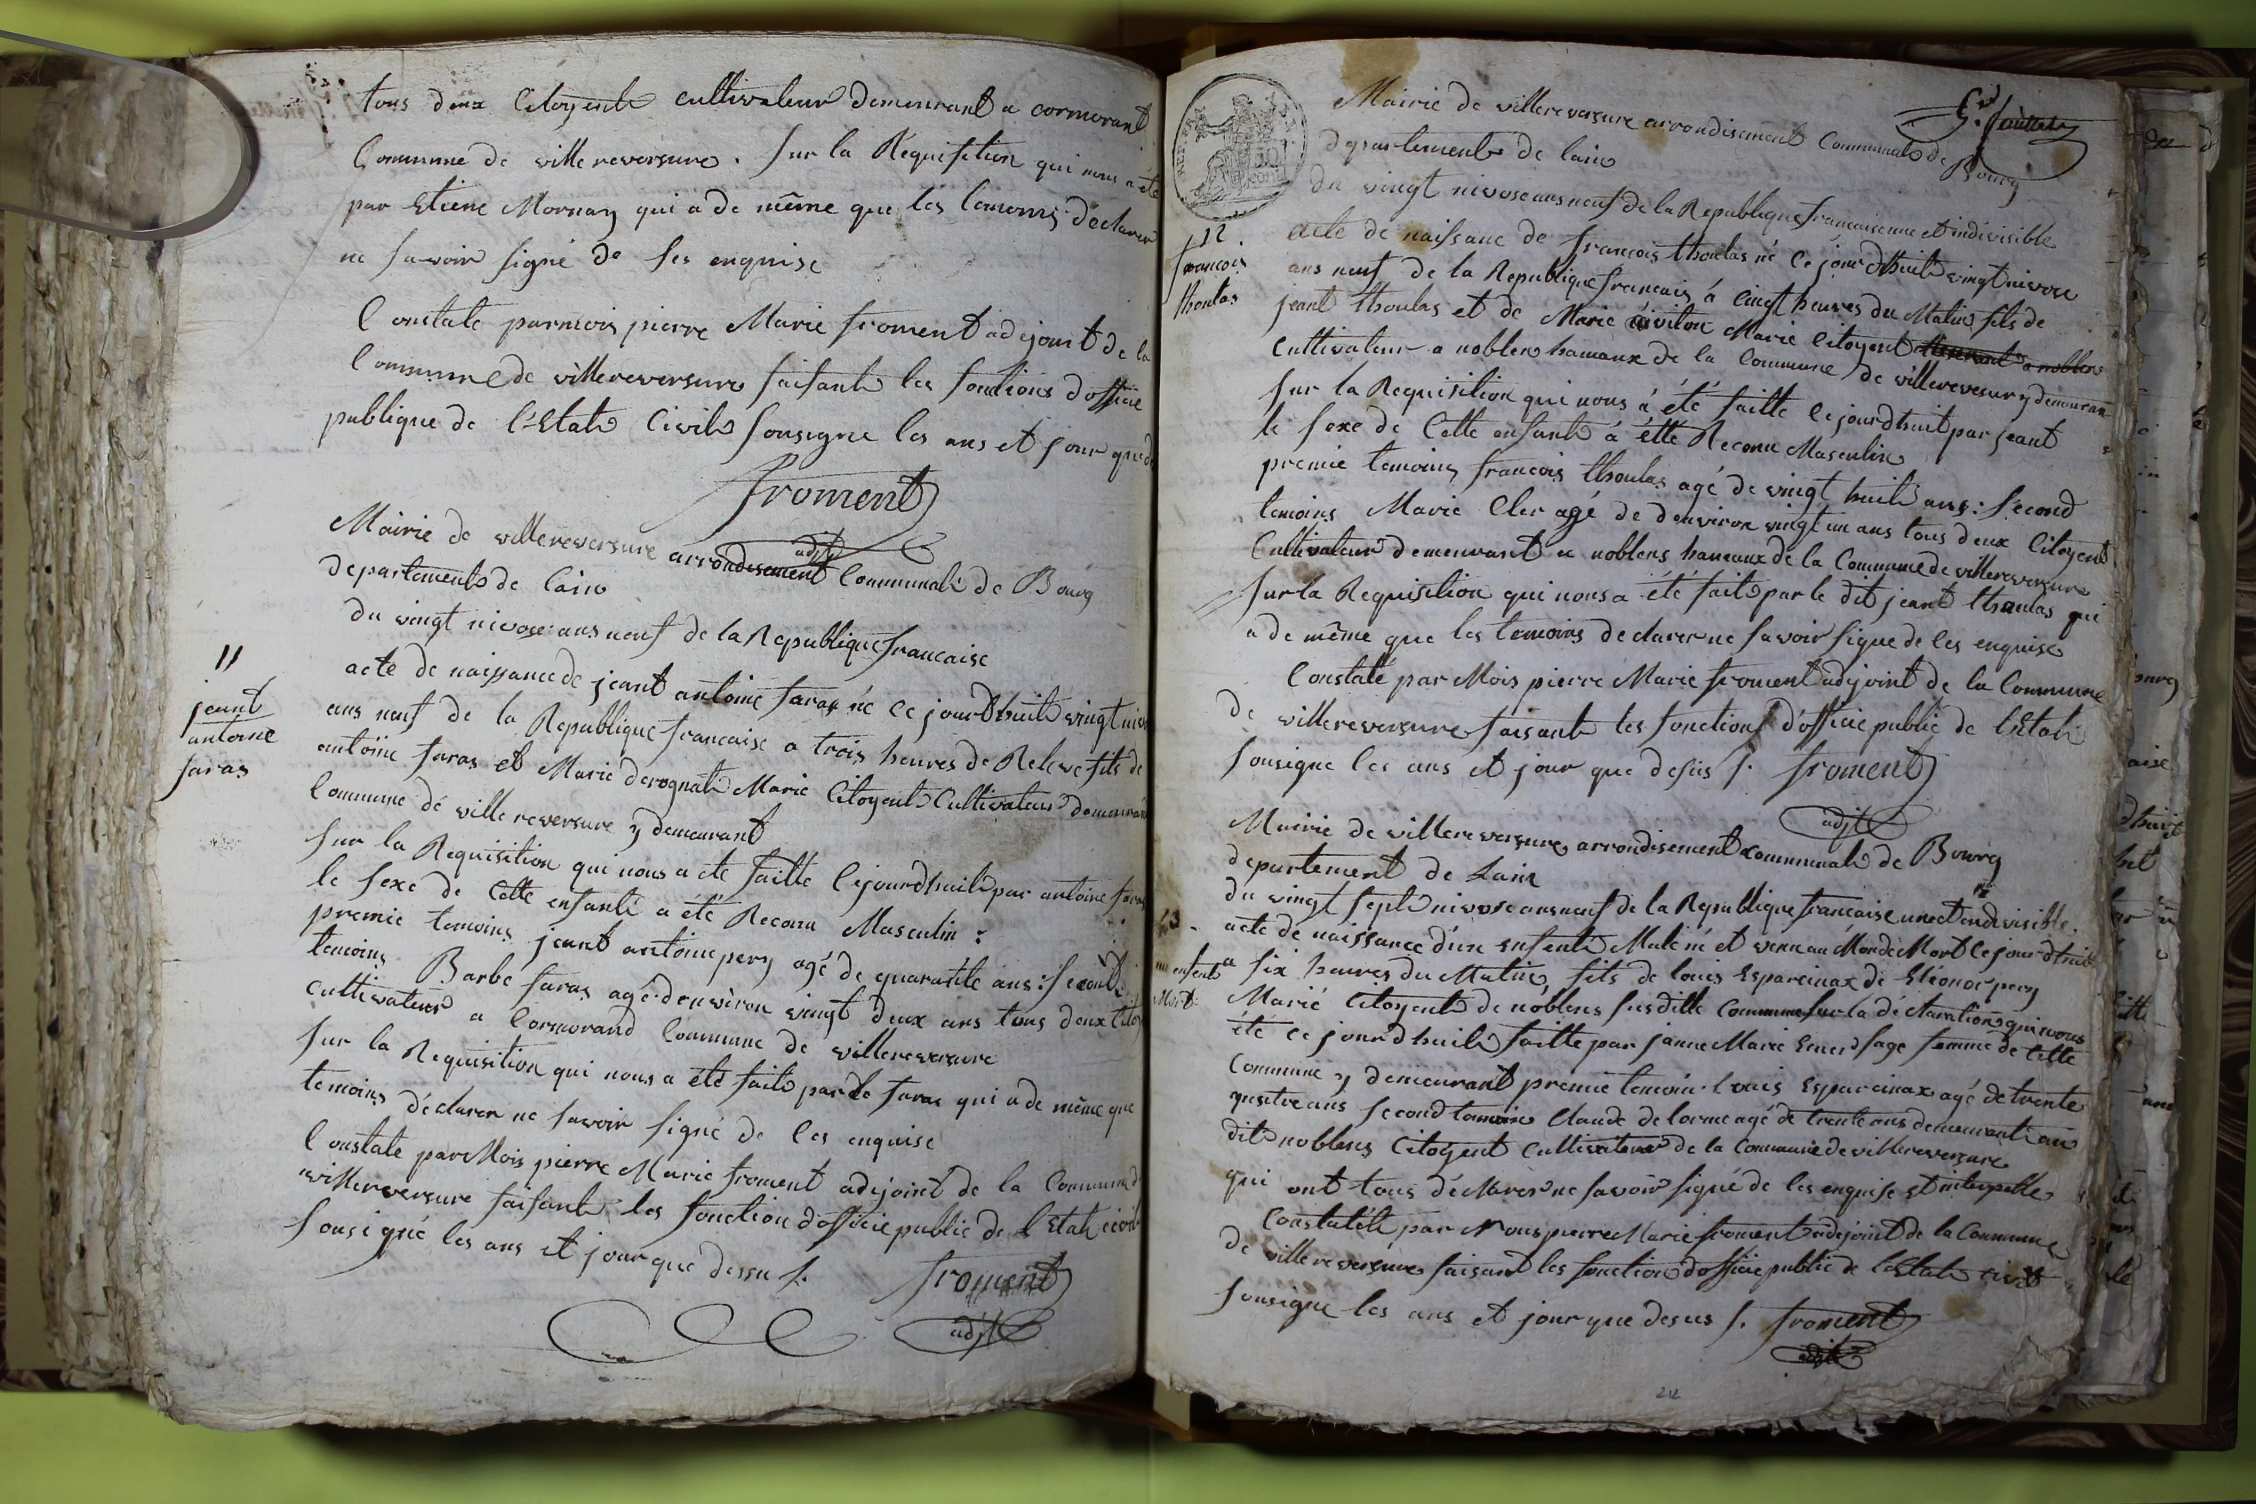 tous deux Citoyent cultivateur demeurant a cormorant
Commune de villereversure. Sur la Requisition qui nous a été
par Etiene Mornay qui a de même que les temoins declarer
ne savoir signé de ses enquise
Constate parmois pierre Marie froment adejoint de la
Commune de villereversure faisant les fonctions d'officie
publique de l'Etat Civil Sousigne les ans et jour que d
froment
adjt
Mairie de villereversure arrondisement Communal de Bourg
departement de lain
du vingt nivose ans neuf de la Republique francaise
11
jeant
antoine
faras
acte de naissance de jeant antoine faras né ce jourdhuit vingt nivo
ans neuf de la Republique francaise a trois heures de Releve fils de
antoine faras et Marie derognat Marie Citoyent Cultivateur demeurant
Commune de villereversure y demeurant
Sur la Requisition qui nous a ete faitte Cejourdhuit par antoine faras
le sexe de Cette enfant a été Reconu Masculin :
premie temoins jeant antoine pery agé de quarante ans : Second
temoins Barbe faras agé denviron vingt deux ans tous deux Citoy
cultivateur a Cormorand Commune de villereversure
Sur la Requisition qui nous a été fait par le faras qui a de même que
temoins déclarer ne savoir signé de les enquise
Constate par Mois pierre Marie froment adejoint de la Commune d
villereversure faisant les fonction d'officie public de l'Etat civil
Sousigné les ans et jour que dessu s.
froment
adjt
G. fauttrel
Mairie de villereversure arrondisement Communal de Bourg
departement de lain
du vingt nivose ans neuf de la Republique francaisenne et indivisible
12.
francois
thoulas
acte de naissance de francois thoulas né Ce jour dhuit vingt nivose
ans neuf de la Republique francais á Cinqt heures du Matin fils de
jeant thoulas et de Marie Marie Citoyent a noblens
Cultivateur a noblens hamaux de la Commune de villereversur y demeuran
Sur la Requisition qui nous á été faitte Cejourdhuit par jeant
le sexe de Cette enfant á étté Reconu Masculin
premie temoins francois thoulas agé de vingt huit ans : Second
temoins Marie Cler agé de denviron vingt un ans tous deux Citoyent
Cultivateur demeurant a noblens hameaux de la Commune de villereversure
Sur la Requisition qui nous a été fait par le dit jeant thoulas qui
a de même que les temoins declarer ne savoir signe de les enquise
Constaté par Mois pierre Marie froment adejoint de la Commune
de villereversure faisant les fonctions d'officie public de l'Etat
Sousigne les ans et jour que desus s. froment
adjt
Mairie de villereversure arrondisement communal de Bourg
departement de Lain
du vingt sept nivose ans neuf de la Republique francaise une et indivisible.
13.
un enfent
Mort
acte de naissance d'un enfent Male né et venu au Monde Mort Ce jour dhuit
a six heures du Matin fils de louis Esparcinax de Eléonor pery
Marié Citoyent de noblens susditte Commune sur la déclaration qui nous
été Ce jourd huit faitte par janne Marie Emerd sage femme de Cette
Commune y demeurant premie temoin louis Esparcinax agé de trente
quatre ans second temoins Claude delorme agé de trente ans demeurant au
dit noblens Citoyent Cultivateur de la Commune de villereversure
qui ont tous déclarer ne savoir signé de les enquise et interpelle
Constatét par Nous pierre Marie froment adejoint de la Commune
de villereversure faisant les fonction d'officie public de l'Etat civil
Sousigne les ans et jour que desus s. froment
adjt
212